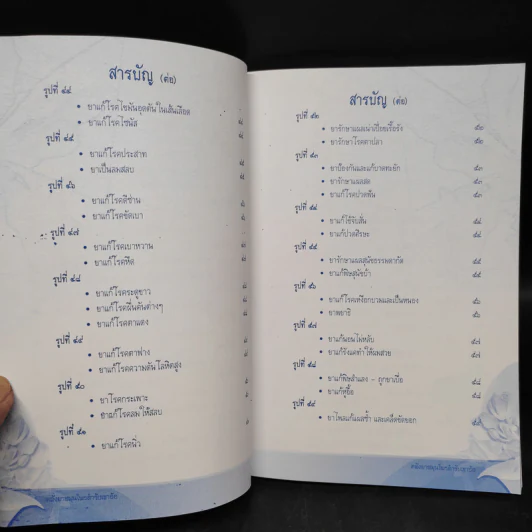 สารบัญ (ต่อ)
รูปที่ ๔๔
• ยาแก้โรคไขมันอุดตันในเส้นเลือด
• ยาแก้โรคไซนัส
รูปที่ ๔๕
• ยาแก้โรคประสาท
• ยาเป็นลมสลบ
รูปที่ ๔๖
• ยาแก้โรคดีซ่าน
• ยาแก้โรคขัดเบา
รูปที่ ๔๗
• ยาแก้โรคเบาหวาน
• ยาแก้โรคหืด
รูปที่ ๔๘
• ยาแก้โรคระดูขาว
• ยาแก้โรคผื่นคันต่างๆ
• ยาแก้โรคตาแดง
รูปที่ ๔๙
• ยาแก้โรคตาฟาง
• ยาแก้โรคความดันโลหิตสูง
รูปที่ ๕๐
• ยาโรคกระเพาะ
• ยาแก้โรคลม ให้สลบ
รูปที่ ๕๑
• ยาแก้โรคนิ่ว
สารบัญ (ต่อ)
รูปที่ ๕๒
• ยารักษาแผลเน่าเปื่อยเรื้อรัง ๕๒
• ยารักษาโรคตาปลา ๕๒
รูปที่ ๕๓
• ยาป้องกันและแก้บาดทะยัก ๕๓
• ยารักษาแผลสด ๕๓
• ยาแก้โรคปวดฟัน ๕๓
รูปที่ ๕๔
• ยาแก้ไข้จับสั่น ๕๔
• ยาแก้ปวดศีรษะ ๕๔
รูปที่ ๕๕
• ยารักษาแผลสุนัขธรรมดากัด ๕๕
• ยาแก้พิษสุนัขบ้า ๕๕
รูปที่ ๕๖
• ยาแก้โรคเหงือกบวมและเป็นหนอง ๕๖
• ยาพยาธิ ๕๖
รูปที่ ๕๗
• ยาแก้นอนไม่หลับ ๕๗
• ยาแก้รังแคทำให้ผมสวย ๕๗
รูปที่ ๕๘
• ยาแก้พิษสำแลง - ถูกยาเบื่อ ๕๘
• ยาแก้หูอื้อ ๕๘
รูปที่ ๕๙
• ยาไพลแก้แผลช้ำ และเคล็ดขัดยอก ๕๙